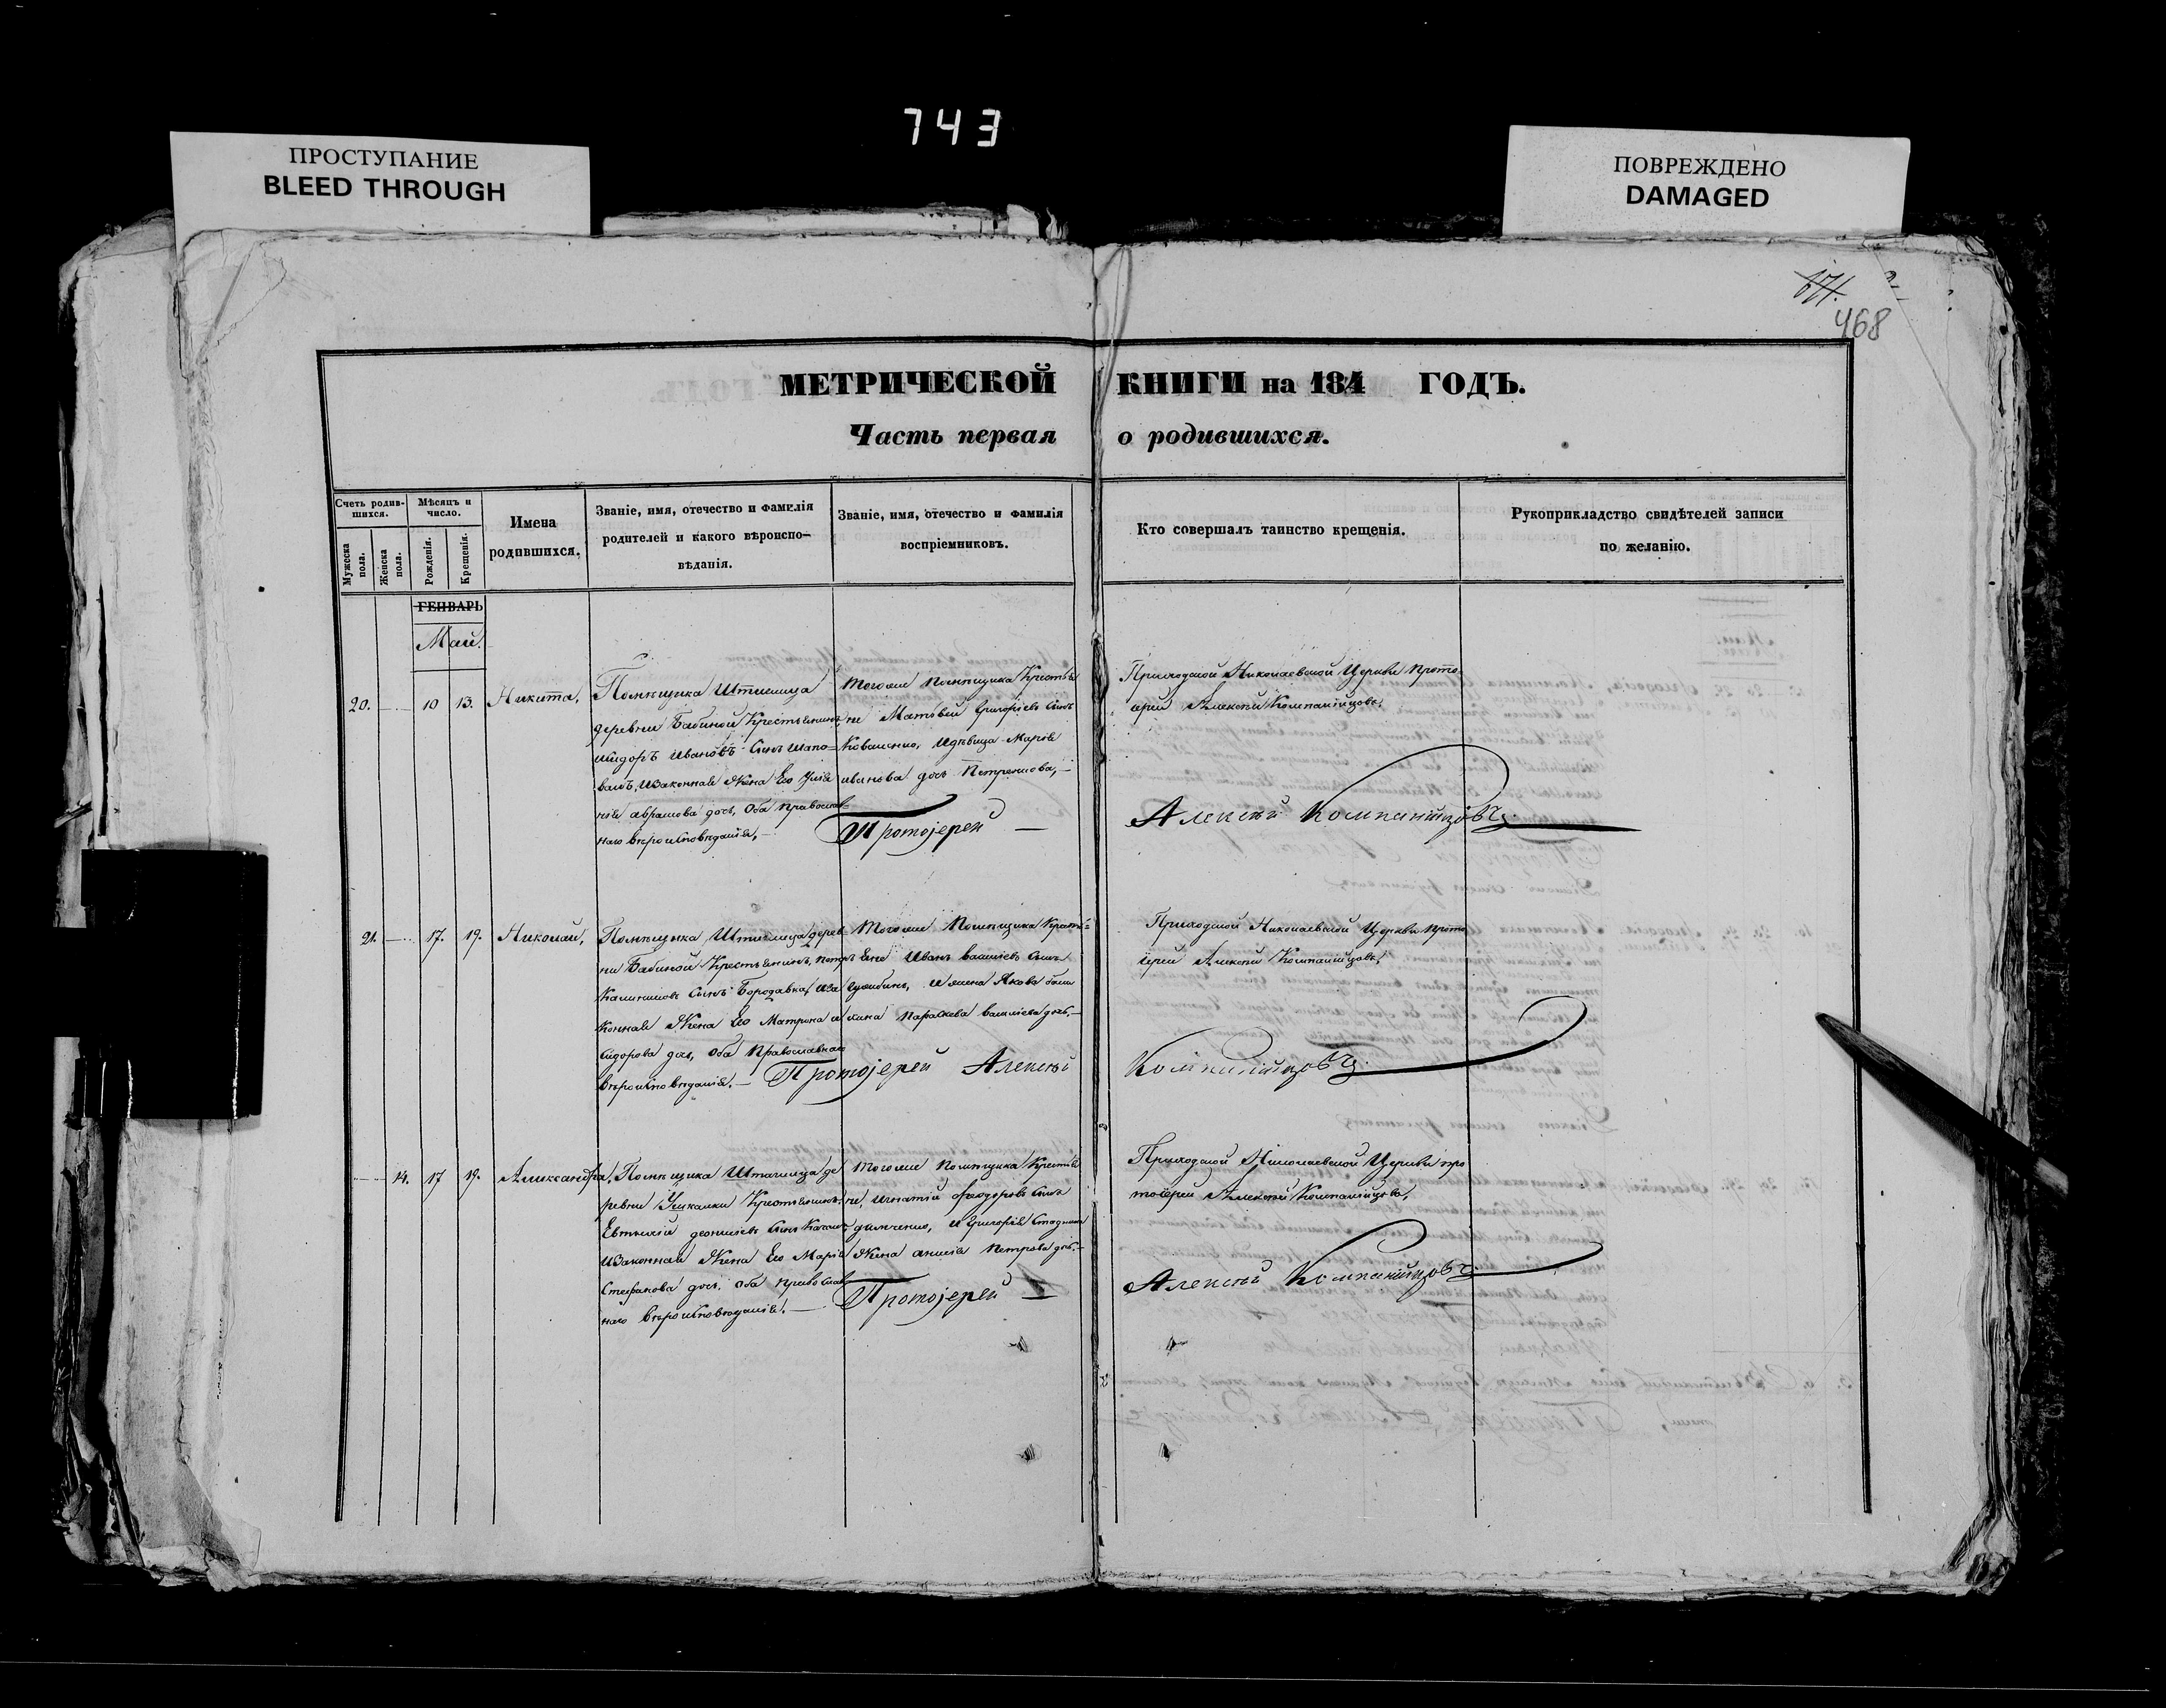 743
ПРОСТУПАНИЕ
BLEED THROUGH
ПОВРЕЖДЕНО
DAMAGED
468
МЕТРИЧЕСКОЙ КНИГИ на 184 ГОДЪ.
Часть первая о родившихся.
Счетъ родив-
шихся.
Мужеска пола.
Женска пола.
Мѣсяцъ и
число.
Рожденія.
Крещенія.
Имена
родившихся.
Званіе, имя, отечество и фамилія
родителей и какого вѣроиспо-
вѣданія.
Званіе, имя, отечество и фамилія
воспріемниковъ.
Кто совершалъ таинство крещенія.
Рукоприкладство свидѣтелей записи
по желанію.
ГЕНВАРЬ
Май.
20.
10
13.
Никита,
Помѣщика
деревни Бабиной Крестьянинъ
Сидоръ Ивановъ Сынъ Шапо=
валъ, изаконная Жена Его Улія
нія абрамова дочь, Оба православ
наго вѣроисповѣданія,
тогоже Помѣщика Крестья
не Матвей Григоріевъ Сынъ
Коваленко, Идѣвица Марія
иванова дочь Петренкова,
Приходской Николаевской Церкви Прото
іерей Алексей Компанійцовъ,
Протоіерей Алексѣй Компанійцовъ.
21.
17.
19.
Николай,
Помѣщика дерев
ни Бабиной Крестьянинъ, петръ
Калиниковъ Сынъ Бородавка, иза
конная Жена Его Матрона
Сидорова дочь, Оба Православнаго
вѣроисповѣданія.
Тогоже Помѣщика Кресть=
яне Иванъ василіевъ Сынъ
и жена Якова
Параскева василіева дочь,
Приходской Николаевской Церкви Прото
іерей Алексей Компанійцовъ,
Протоіерей Алексѣй Компанійцовъ.
14.
17
19.
Александра,
Помѣщика де
ревни Крестьянинъ,
Евтихій Сынъ
изаконная Жена Его Марія
Стефанова дочь, Оба православ
наго вѣроисповѣданія.
Тогоже Помѣщика Крестья
не, игнатій феодоровъ Сынъ
и Григорія
Жена анисія Петрова дочь.
Приходской Николаевской Церкви про
тоіерей Алексей Компанійцовъ,
Протоіерей Алексѣй Компанійцовъ.